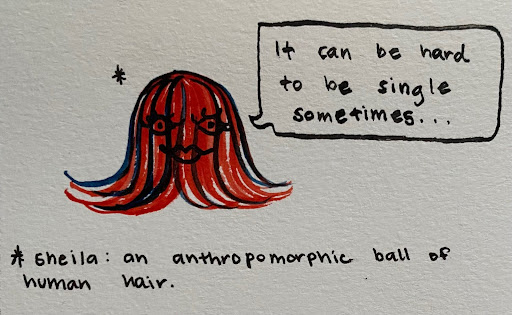 It can be hard
to be single
sometimes...
*
* sheila: an anthropomorphic ball of
human hair.